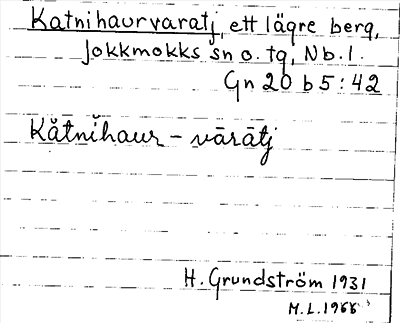 Katnihaurvaratj, ett lägre berg,
Jokkmokks sn o. tg, Nb. l.
Gn 20 b 5:42
Kåtnĭhaur – vārātj
H. Grundström 1931
M.L. 1966